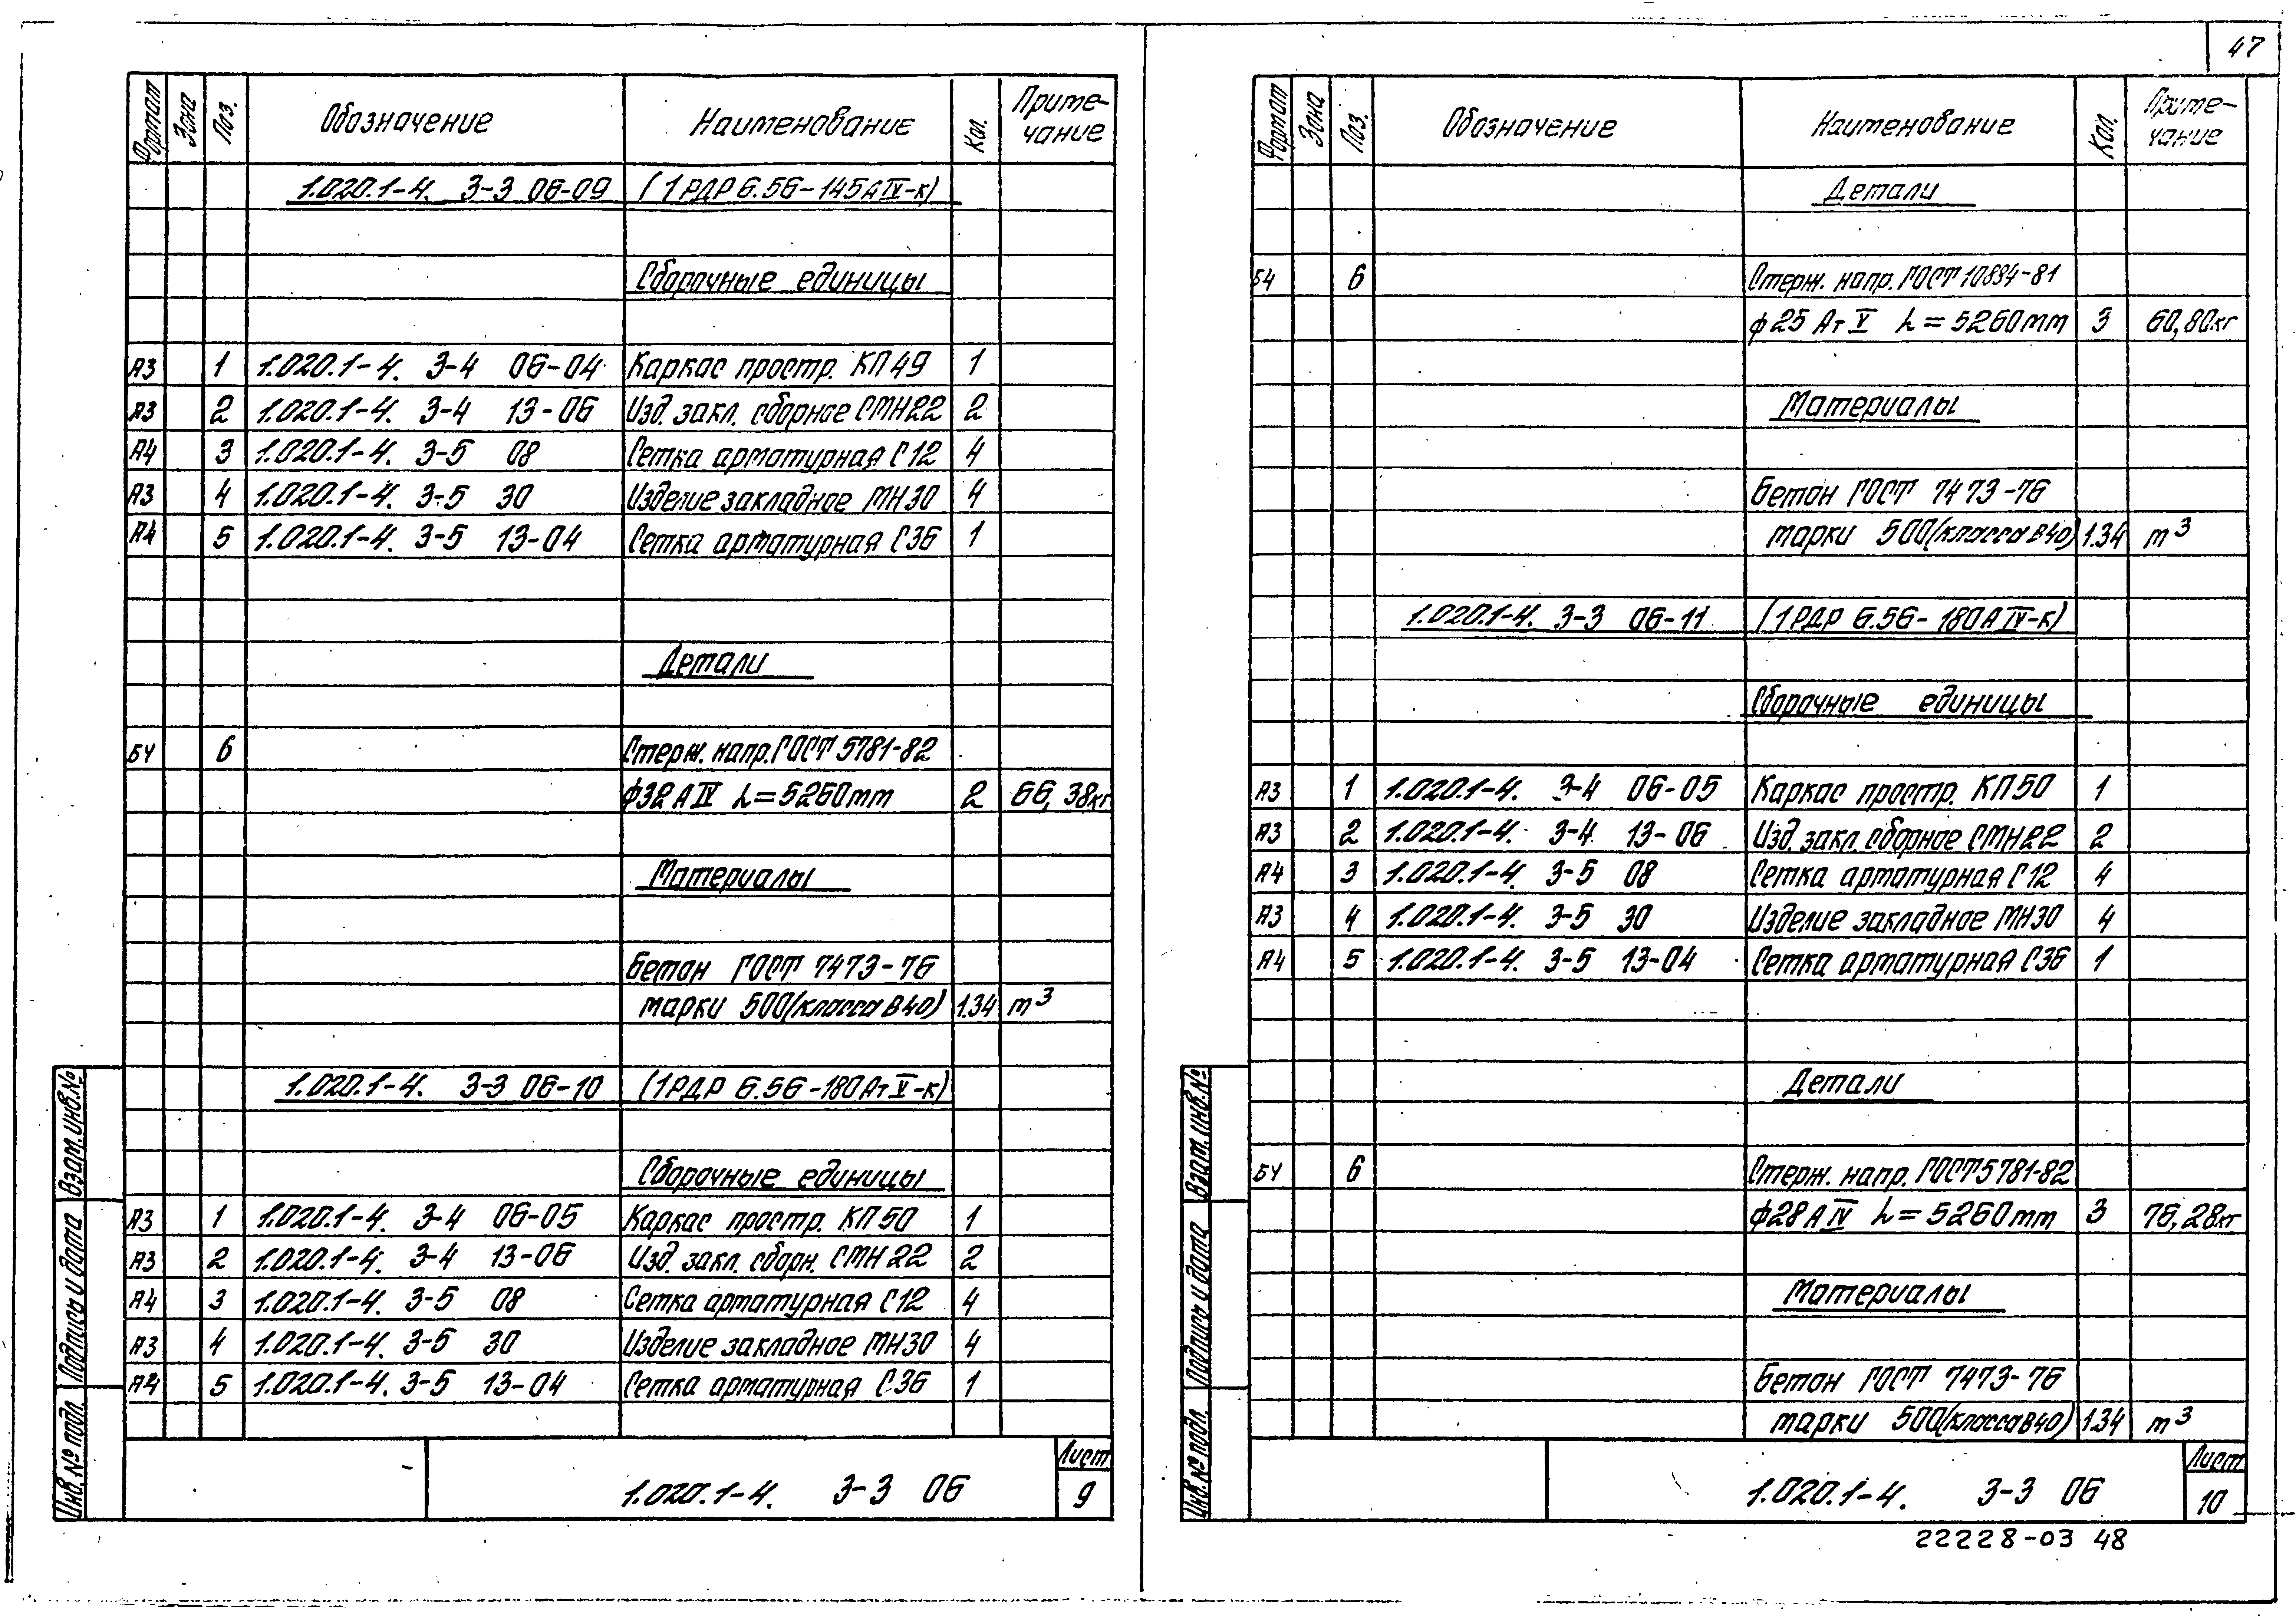 47
Формат Зона Поз. Обозначение Наименование Кол. Приме-
чание
1.020.1-4. 3-3 06-09 (1РДР 6.56-145АIV-к)
Сборочные единицы
А3 1 1.020.1-4. 3-4 06-04 Каркас простр. КП49 1
А3 2 1.020.1-4. 3-4 13-06 Изд. закл. сборное СМН22 2
А4 3 1.020.1-4. 3-5 08 Сетка арматурная С12 4
А3 4 1.020.1-4. 3-5 30 Изделие закладное МН30 4
А4 5 1.020.1-4. 3-5 13-04 Сетка арматурная С36 1
Детали
БЧ 6 Стерж. напр. ГОСТ 5781-82
ф32АIV L=5260мм 2 66,38кг
Материалы
Бетон ГОСТ 7473-76
марки 500(класса В40) 1.34 м³
1.020.1-4. 3-3 06-10 (1РДР 6.56-180АтV-к)
Сборочные единицы
А3 1 1.020.1-4. 3-4 06-05 Каркас простр. КП50 1
А3 2 1.020.1-4. 3-4 13-06 Изд. закл. сборн. СМН22 2
А4 3 1.020.1-4. 3-5 08 Сетка арматурная С12 4
А3 4 1.020.1-4. 3-5 30 Изделие закладное МН30 4
А4 5 1.020.1-4. 3-5 13-04 Сетка арматурная С36 1
Инв. № подл. Подпись и дата Взам. инв. №
1.020.1-4. 3-3 06
Лист
9
Формат Зона Поз. Обозначение Наименование Кол. Приме-
чание
Детали
Б4 6 Стерж. напр. ГОСТ 10884-81
ф25 АтV L=5260мм 3 60,80кг
Материалы
Бетон ГОСТ 7473-76
марки 500(класса В40) 1.34 м³
1.020.1-4. 3-3 06-11 (1РДР 6.56-180АIV-к)
Сборочные единицы
А3 1 1.020.1-4. 3-4 06-05 Каркас простр. КП50 1
А3 2 1.020.1-4. 3-4 13-06 Изд. закл. сборное СМН22 2
А4 3 1.020.1-4. 3-5 08 Сетка арматурная С12 4
А3 4 1.020.1-4. 3-5 30 Изделие закладное МН30 4
А4 5 1.020.1-4. 3-5 13-04 Сетка арматурная С36 1
Детали
БЧ 6 Стерж. напр. ГОСТ 5781-82
ф28АIV L=5260мм 3 76,28кг
Материалы
Бетон ГОСТ 7473-76
марки 500(класса В40) 1.34 м³
Инв. № подл. Подпись и дата Взам. инв. №
1.020.1-4. 3-3 06
Лист
10
22228-03 48